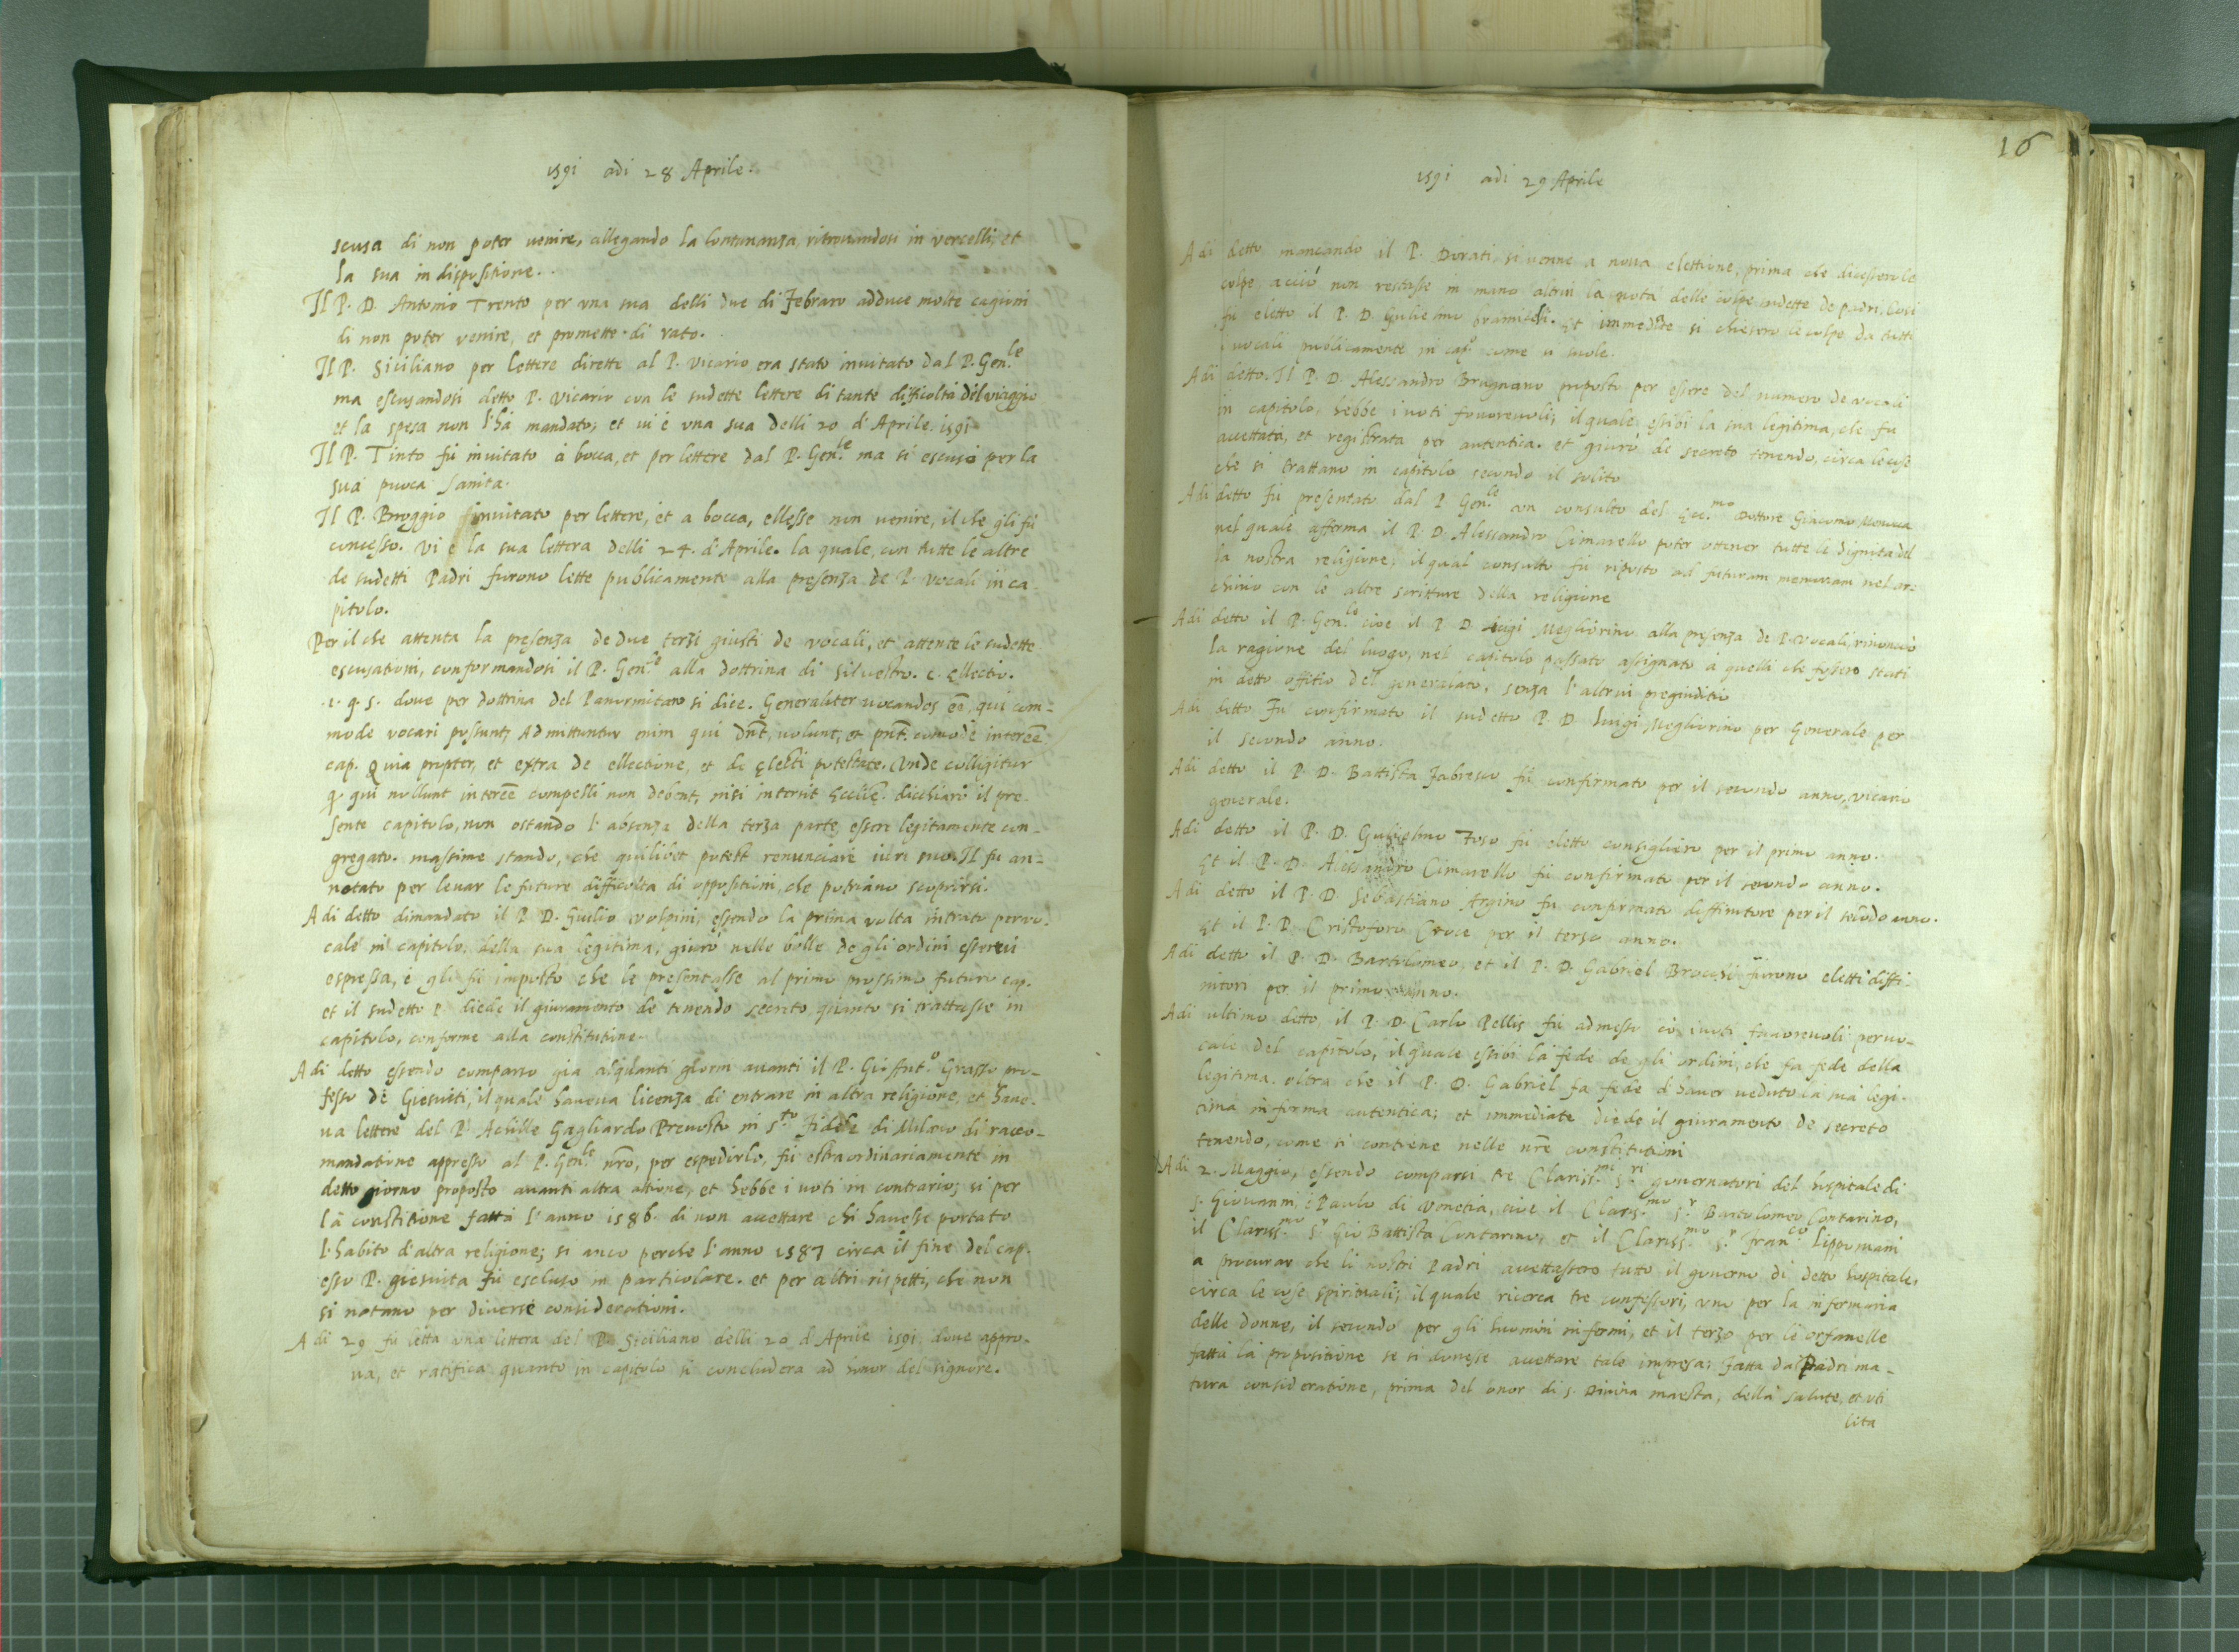 1591 adi 28 Aprile.
scusa di non poter uenire, allegando la lontananza, ritrouandosi in vercelli, et
la sua indispositione.
Il P. D. Antonio Trento per vna sua delli due di Febraro adduce molte cagioni
di non poter venire, et promette di rato.
Il P. Siciliano per lettere dirette al P. Vicario era stato inuitato dal P. Gen.le
ma escusandosi detto P. Vicario con le sudette lettere di tante difficoltà del viaggio
et la spesa non l'hà mandato; et ui è vna sua delli 20 d'Aprile. 1591
Il P. Tinto fù inuitato à bocca, et per lettere dal P. Gen.le ma si escusò per la
sua puoca sanita.
Il P. Broggio inuitato per lettere, et a bocca, ellesse non uenire, il che gli fù
concesso. Vi è la sua lettera delli 24. d'Aprile. la quale, con tutte le altre
de sudetti Padri furono lette publicamente alla presenza de P. vocali in ca-
pitolo.
Per il che attenta la presenza de due terzi giusti de vocali, et attente le sudette
escusationi, conformandosi il P. Gen.le alla dottrina di Siluestro. c. ellectio.
1. q. 5. doue per dottrina del Panormitano si dice. Generaliter uocandos eẽ, qui com-
mode vocari possunt; Admittuntur enim qui dnt, uolunt, et pnt. comodè intereẽ
cap. Quia propter, et extra de ellectione, et de electi potestate. Vnde colligitur
q. qui nollunt intereẽ compelli non debent, nisi intersit Eccliẽ. dicchiarò il pre-
sente capitolo, non ostando l'absenza della terza parte, essere legitamente con-
gregato. massime stando, che quilibet potest renunciare iuri suo. Il fu an-
notato per leuar le future difficolta di oppositioni, che potriano scoprirsi.
A di detto dimandato il P. D. Giulio volpini, essendo la prima volta intrato per vo-
cale in capitolo, della sua legitima; giurò nelle bolle de gli ordini esserui
espressa, è gli fù imposto che le presentasse al primo prossimo futuro cap.
et il sudetto P. diede il giuramento de tenendo secreto quanto si trattasse in
capitolo, conforme alla constitutione.
A di detto essendo comparso gia alquanti giorni auanti il P. Grasso pro-
fesso de Giesuiti, il quale haueua licenza di entrare in altra religione, et haue-
ua lettere del P. Achille Gagliardo Preuosto in S.to Fidele di Milano di racco-
mandatione appresso al P. Gen.le nrõ, per espedirlo, fù estraordinariamente in
detto giorno proposto auanti altra attione, et hebbe i uoti in contrario; si per
la constitione fatta l'anno 1586. di non accettare chi hauesse portato
l'habito d'altra religione; si anco perche l'anno 1587 circa il fine del cap.
esso P. giesuita fù escluso in particolare. et per altri rispetti, che non
si notano per diuerse considerationi.
A di 29 fù letta vna lettera del P. Siciliano delli 20 d'Aprile 1591 doue appro-
ua, et ratifica quanto in capitolo si concludera ad honor del signore.
16
1591 adi 29 Aprile
A di detto mancando il P. Dorati, si uenne a noua elettione, prima che dicessero le
colpe acciò non restasse in mano altrui la nota delle colpe sudette de padri. Cosi
fu eletto il P. D. Gulielmo Bramicelli. Et immediate si chiesero le colpe da tutti
i uocali publicamente in cap.o come si suole.
A di detto. Il P. D. Alessandro Brugnano proposto per essere del numero de uocali
in capitolo, hebbe i uoti fauoreuoli; il quale essibi la sua legitima, che fu
accettata, et registrata per autentica. et giurò de secreto tenendo, circa le cose
che si trattano in capitolo secondo il solito
A di detto fù presentato dal P. Gen.le con consulto del Ecc.mo Dottore Giacomo
nel quale afferma il P. D. Alessandro Cimarello poter ottener tutte le dignita del
la nostra religione; il qual consulto fù riposto ad futuram memoriam nel ar-
chiuio con le altre scritture della religione
A di detto il P. Gen.le cioe il P. D. Luigi Megliorino alla presenza de P. vocali, rinonciò
la ragione del luogo, nel capitolo passato assignato à quelli che fossero stati
in detto offitio del generalato, senza l'altrui pregiuditio
A di detto Fù confirmato il sudetto P. D. Luigi Megliorino per Generale per
il secondo anno.
A di detto il P. D. Battista Fabresco fù confirmato per il secondo anno, vicario
generale.
A di detto il P. D. Gulielmo Toso fù eletto consigliero per il primo anno.
Et il P. D. Alessandro Cimarello fù confirmato per il secondo anno.
A di detto il P. D. Sebastiano Argino fù confirmato diffinitore per il secõdo anno.
Et il P. P. Cristoforo Croce per il terzo anno.
A di detto il P. D. Bartolomeo, et il P. D. Gabriel Brocesi furono eletti diffi-
nitori per il primo anno.
A di ultimo detto il P. D. Carlo Pellis fù admesso cõ i uoti fauoreuoli per uo-
cale del capitolo, il quale essibi la fede de gli ordini, che fa fede della
legitima. oltra che il P. D. Gabriel fa fede d'hauer ueduto la sua legi-
tima in forma autentica; et immediate diede il giuramento de secreto
tenendo, come si contiene nelle nrẽ constitutioni
A di 2. Maggio, essendo comparsi tre Clariss.mi s.ri gouernatori del hospitale di
s. Giouanni, è Paulo di Venetia, cioè il Clariss.mo s.r Bartolomeo Contarino,
il Clariss.mo s.r Gio Battista Contarino, et il Clariss.mo s.r Fran.co Lippomani
a procurar che li nostri Padri accettassero tutto il gouerno di detto hospitale,
circa le cose spirituali; il quale ricerca tre confessori, vno per la infermaria
delle donne, il secondo per gli huomini infermi, et il terzo per le orfanelle
fatta la propositione se si douesse accettare tale impresa; fatta da Padri ma-
tura consideratione, prima del onor di s. Diuina maesta, della salute, et uti
lita